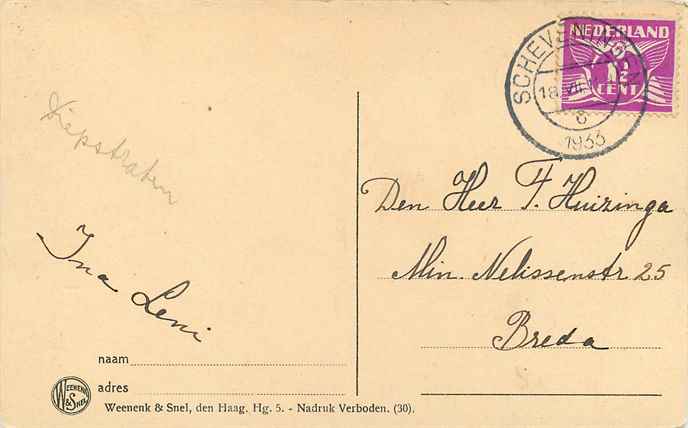 NEDERLAND
1½
CENT
SCHEVENINGEN
18
1933
Diepstraten
Ina Leni
Den Heer F. Huizinga
Min. Nelissenstr 25
Breda
naam
adres
WEENENK
& SNEL
Weenenk & Snel, den Haag. Hg. 5. - Nadruk Verboden. (30).